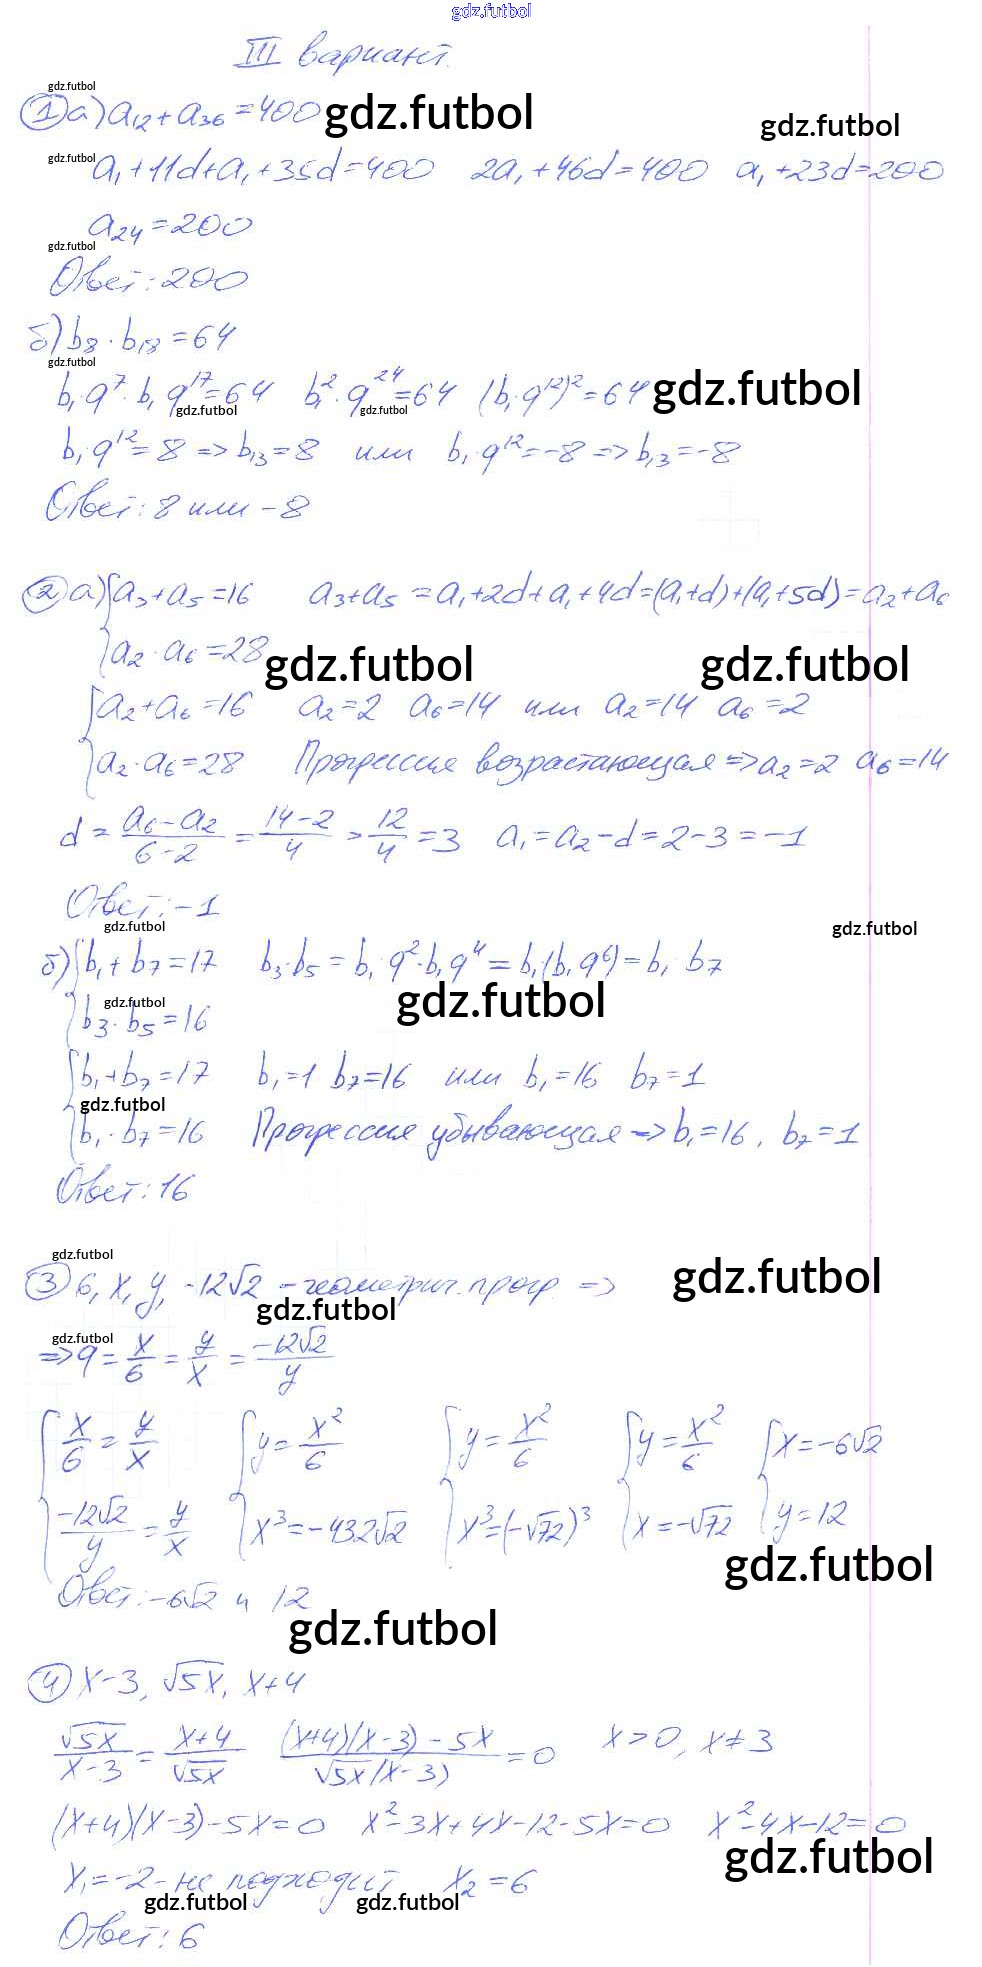 gdz.futbol
III вариант.
gdz.futbol
① а) a₁₂ + a₃₆ = 400 gdz.futbol
gdz.futbol
gdz.futbol a₁ + 11d + a₁ + 35d = 400 2a₁ + 46d = 400 a₁ + 23d = 200
a₂₄ = 200
gdz.futbol
Ответ: 200
б) b₈ · b₁₈ = 64
gdz.futbol
b₁q⁷ · b₁q¹⁷ = 64 b₁² · q²⁴ = 64 (b₁q¹²)² = 64 gdz.futbol
gdz.futbol gdz.futbol
b₁·q¹² = 8 => b₁₃ = 8 или b₁·q¹² = -8 => b₁₃ = -8
Ответ: 8 или -8
② а) { a₃ + a₅ = 16 a₃ + a₅ = a₁ + 2d + a₁ + 4d = (a₁ + d) + (a₁ + 5d) = a₂ + a₆
a₂ · a₆ = 28 gdz.futbol gdz.futbol
{ a₂ + a₆ = 16 a₂ = 2 a₆ = 14 или a₂ = 14 a₆ = 2
a₂ · a₆ = 28 Прогрессия возрастающая => a₂ = 2 a₆ = 14
d = (a₆ - a₂)/(6 - 2) = (14 - 2)/4 = 12/4 = 3 a₁ = a₂ - d = 2 - 3 = -1
Ответ: -1
gdz.futbol gdz.futbol
б) { b₁ + b₇ = 17 b₃·b₅ = b₁·q²·b₁q⁴ = b₁·(b₁q⁶) = b₁·b₇
gdz.futbol gdz.futbol
b₃·b₅ = 16
{ b₁ + b₇ = 17 b₁ = 1 b₇ = 16 или b₁ = 16 b₇ = 1
gdz.futbol
b₁·b₇ = 16 Прогрессия убывающая => b₁ = 16, b₇ = 1
Ответ: 16
gdz.futbol
③ 6, x, y, -12√2 - геометрич. прогр. => gdz.futbol
gdz.futbol
gdz.futbol
=> q = x/6 = y/x = -12√2/y
{ x/6 = y/x { y = x²/6 { y = x²/6 { y = x²/6 { x = -6√2
-12√2/y = y/x x³ = -432√2 x³ = (-√72)³ x = -√72 y = 12
gdz.futbol
Ответ: -6√2 и 12
gdz.futbol
④ x-3, √5x, x+4
√5x/(x-3) = (x+4)/√5x ((x+4)(x-3) - 5x)/(√5x(x-3)) = 0 x > 0, x ≠ 3
(x+4)(x-3) - 5x = 0 x² - 3x + 4x - 12 - 5x = 0 x² - 4x - 12 = 0
gdz.futbol
x₁ = -2 - не подходит x₂ = 6
gdz.futbol gdz.futbol
Ответ: 6